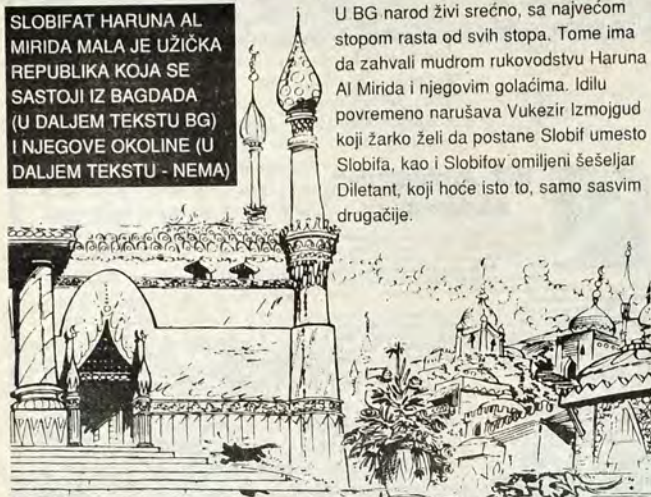 SLOBIFAT HARUNA AL
MIRIDA MALA JE UŽIČKA
REPUBLIKA KOJA SE
SASTOJI IZ BAGDADA
(U DALJEM TEKSTU BG)
I NJEGOVE OKOLINE (U
DALJEM TEKSTU - NEMA)
U BG narod živi srećno, sa najvećom
stopom rasta od svih stopa. Tome ima
da zahvali mudrom rukovodstvu Haruna
Al Mirida i njegovim golaćima. Idilu
povremeno narušava Vukezir Izmojgud
koji žarko želi da postane Slobif umesto
Slobifa, kao i Slobifov omiljeni šešeljar
Diletant, koji hoće isto to, samo sasvim
drugačije.